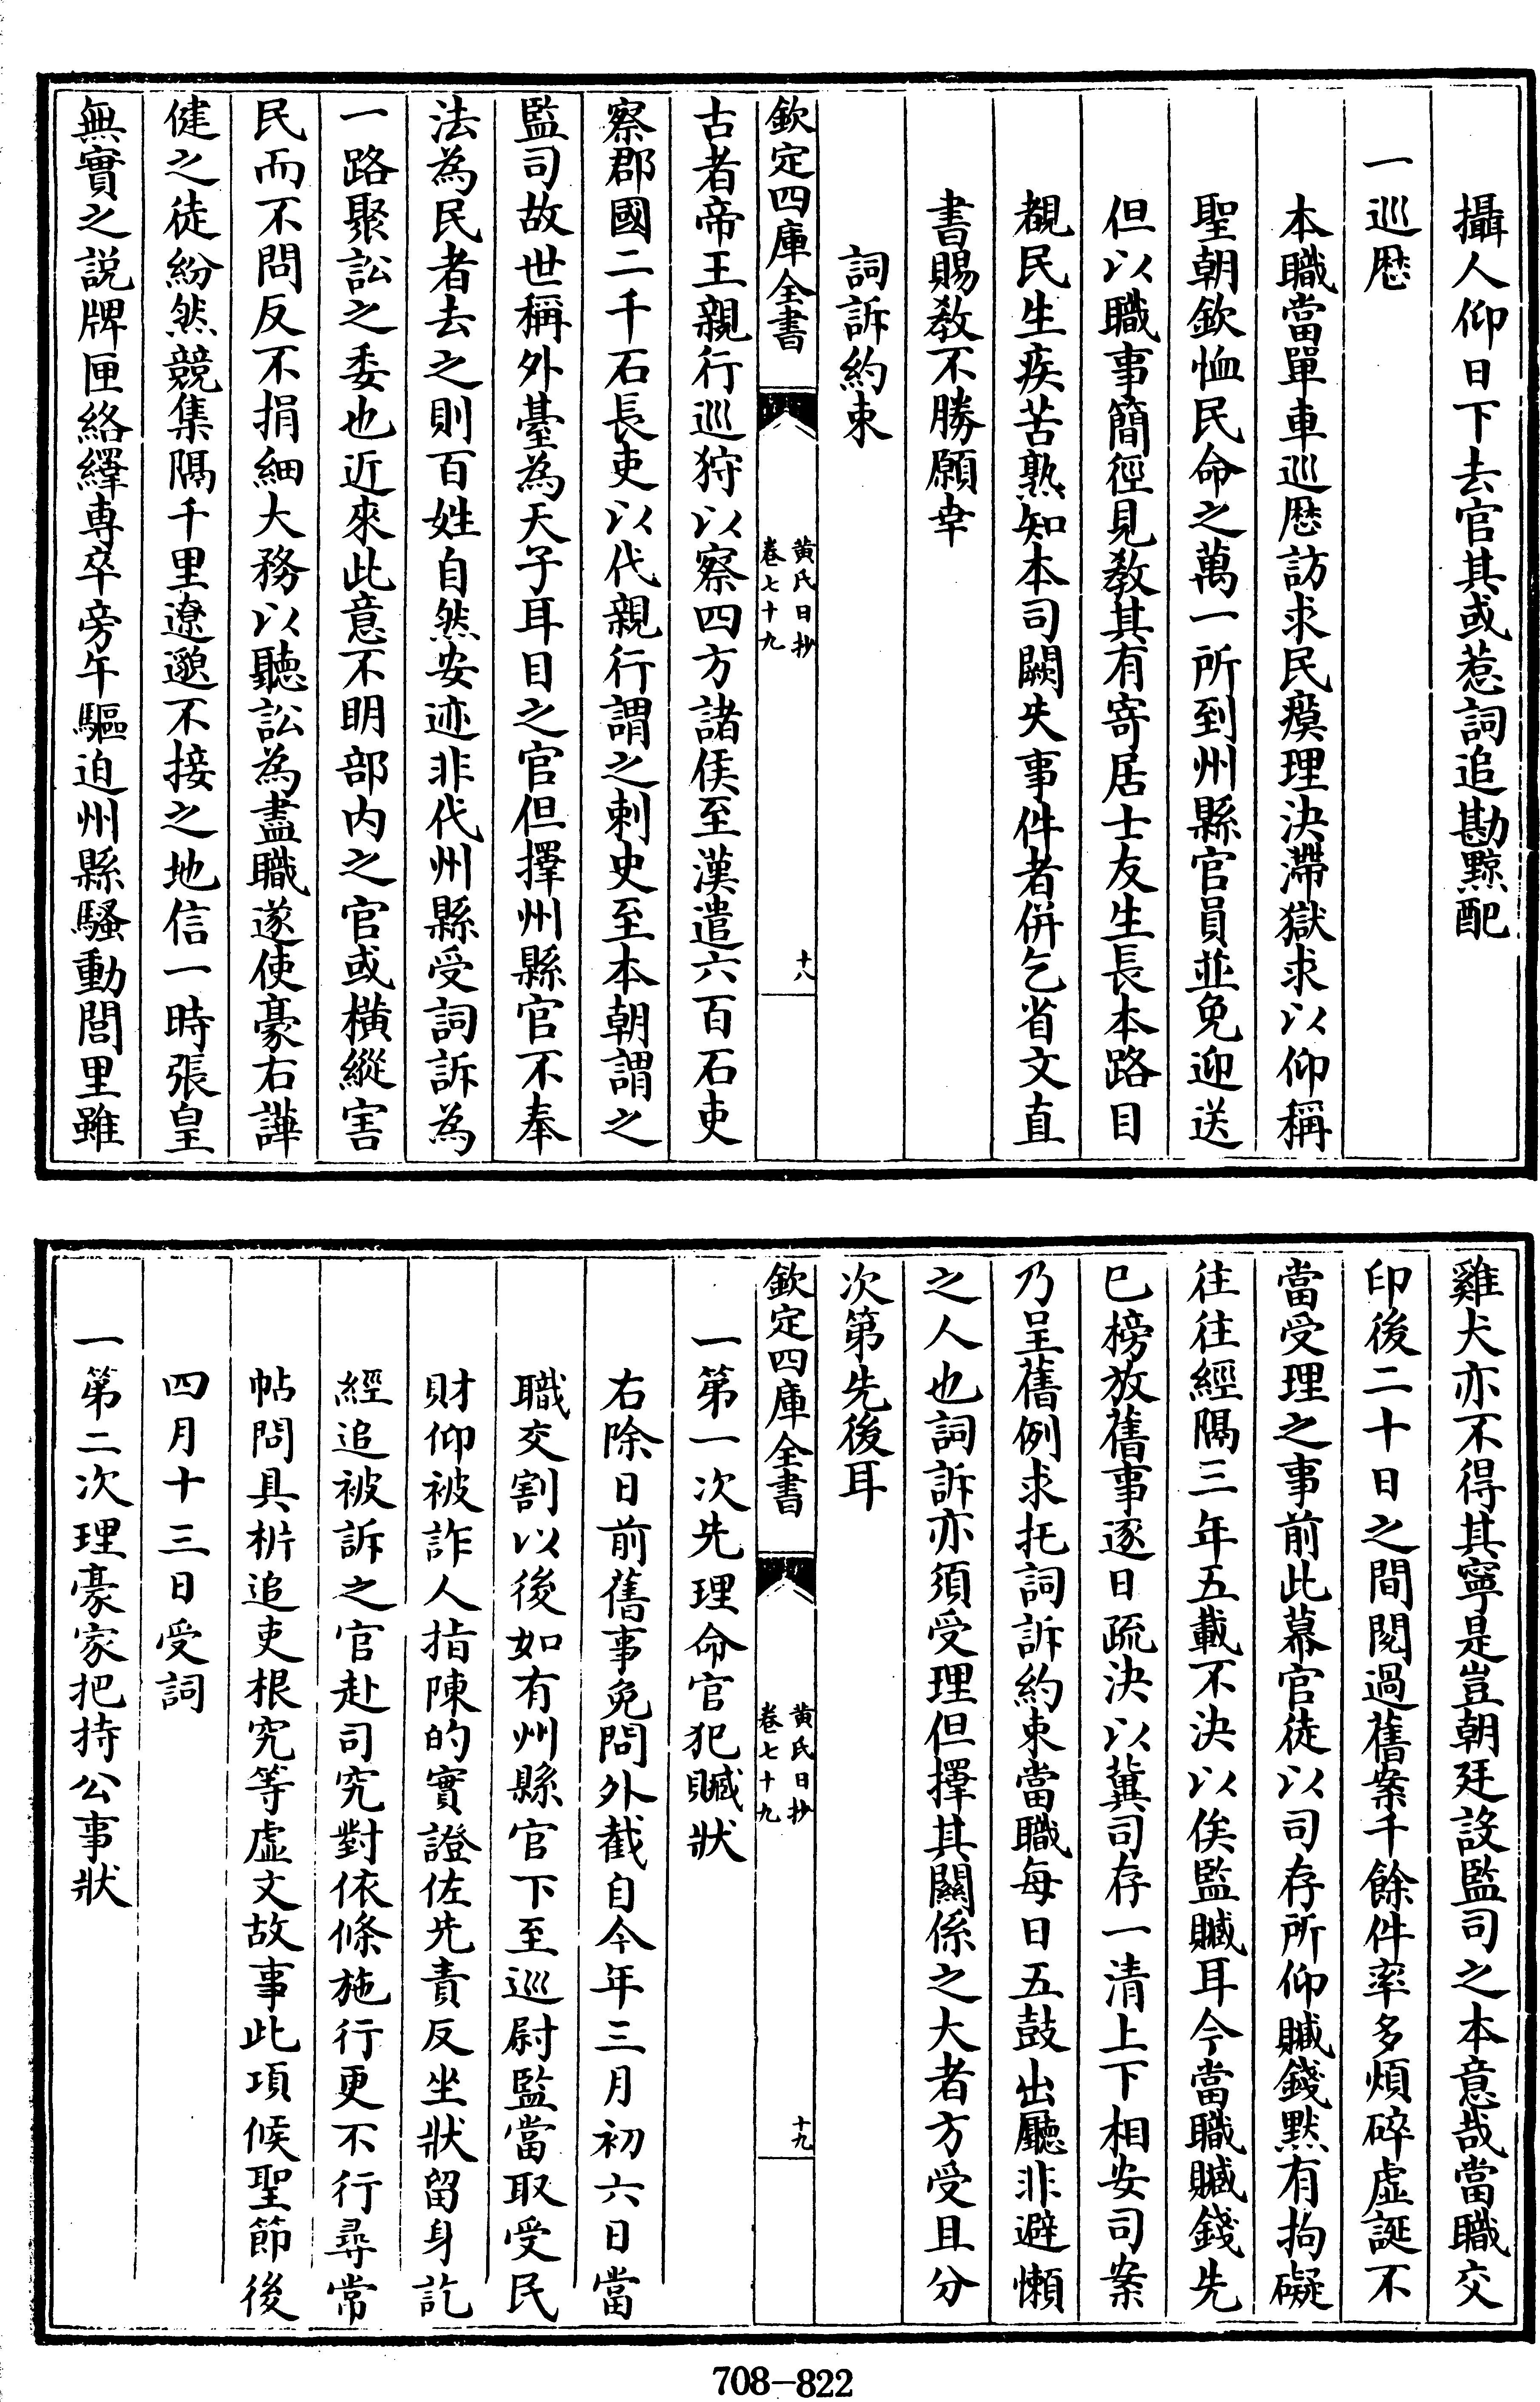 攝人仰日下去官其或惹詞追勘黥配
一巡歴
本職當單車巡歴訪求民瘼理決滯獄求以仰稱
聖朝欽恤民命之萬一所到州縣官員並免迎送
但以職事簡徑見教其有寄居士友生長本路目
覩民生疾苦熟知本司闕失事件者併乞省文直
書賜教不勝願幸
詞訴約束
欽定四庫全書
黄氏日抄
卷七十九
十八
古者帝王親行巡狩以察四方諸侯至漢遣六百石吏
察郡國二千石長吏以代親行謂之刺史至本朝謂之
監司故世稱外臺為天子耳目之官但擇州縣官不奉
法為民者去之則百姓自然安迹非代州縣受詞訴為
一路聚訟之委也近來此意不明部内之官或横縱害
民而不問反不捐細大務以聽訟為盡職遂使豪右譁
健之徒紛然競集隔千里遼邈不接之地信一時張皇
無實之説牌匣絡繹専卒旁午驅迫州縣騷動閭里雖
雞犬亦不得其寧是豈朝廷設監司之本意哉當職交
印後二十日之間閲過舊案千餘件率多煩碎虛誕不
當受理之事前此幕官徒以司存所仰贓錢黙有拘礙
往往經隔三年五載不決以俟監贓耳今當職贓錢先
已榜放舊事逐日疏決以冀司存一清上下相安司案
乃呈舊例求扥詞訴約束當職每日五鼓出廳非避懶
之人也詞訴亦須受理但擇其關係之大者方受且分
次第先後耳
欽定四庫全書
黄氏日抄
卷七十九
十九
一第一次先理命官犯贓狀
右除日前舊事免問外截自今年三月初六日當
職交割以後如有州縣官下至巡尉監當取受民
財仰被詐人指陳的實證佐先責反坐狀留身訖
經追被訴之官赴司究對依條施行更不行尋常
帖問具析追吏根究等虛文故事此項候聖節後
四月十三日受詞
一第二次理豪家把持公事狀
708-822